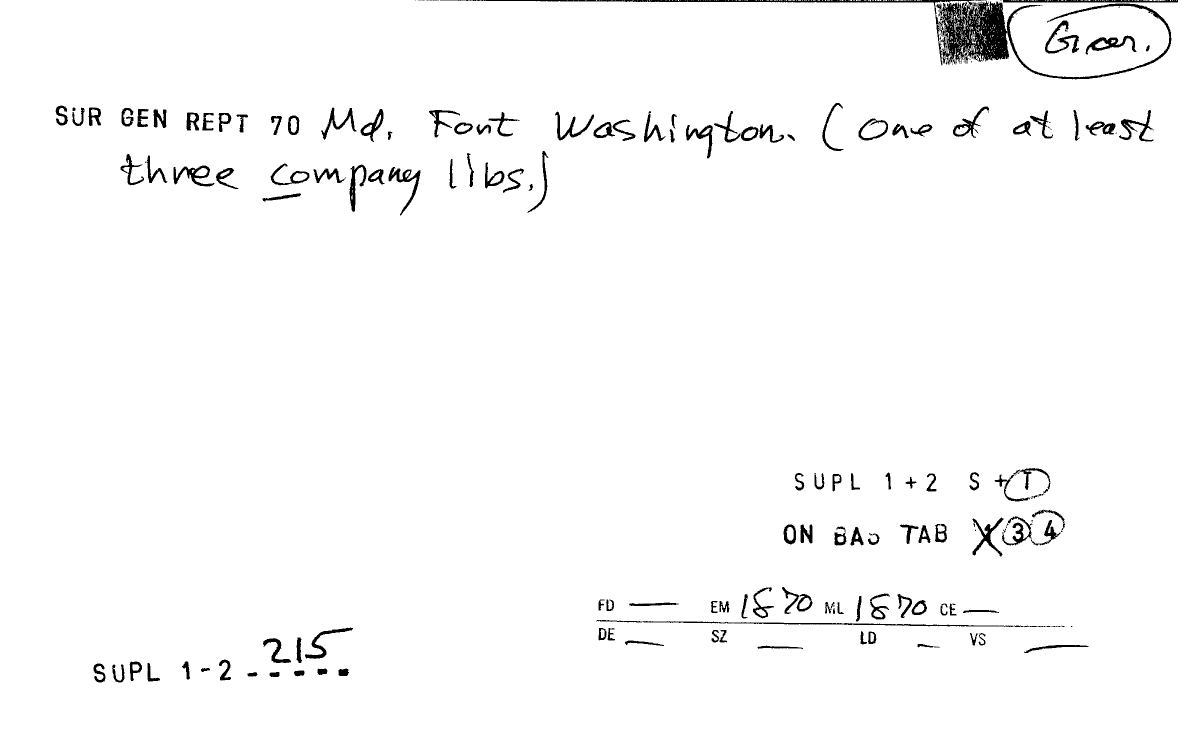 SUR GEN REPT 70 Md. Fort Washington. (One of at least
three company libs.)
SUPL 1+2 S+T
ON BAS TAB X 3 4
FD — EM 1870 ML 1870 CE —
DE — SZ — LD — VS —
SUPL 1-2 215